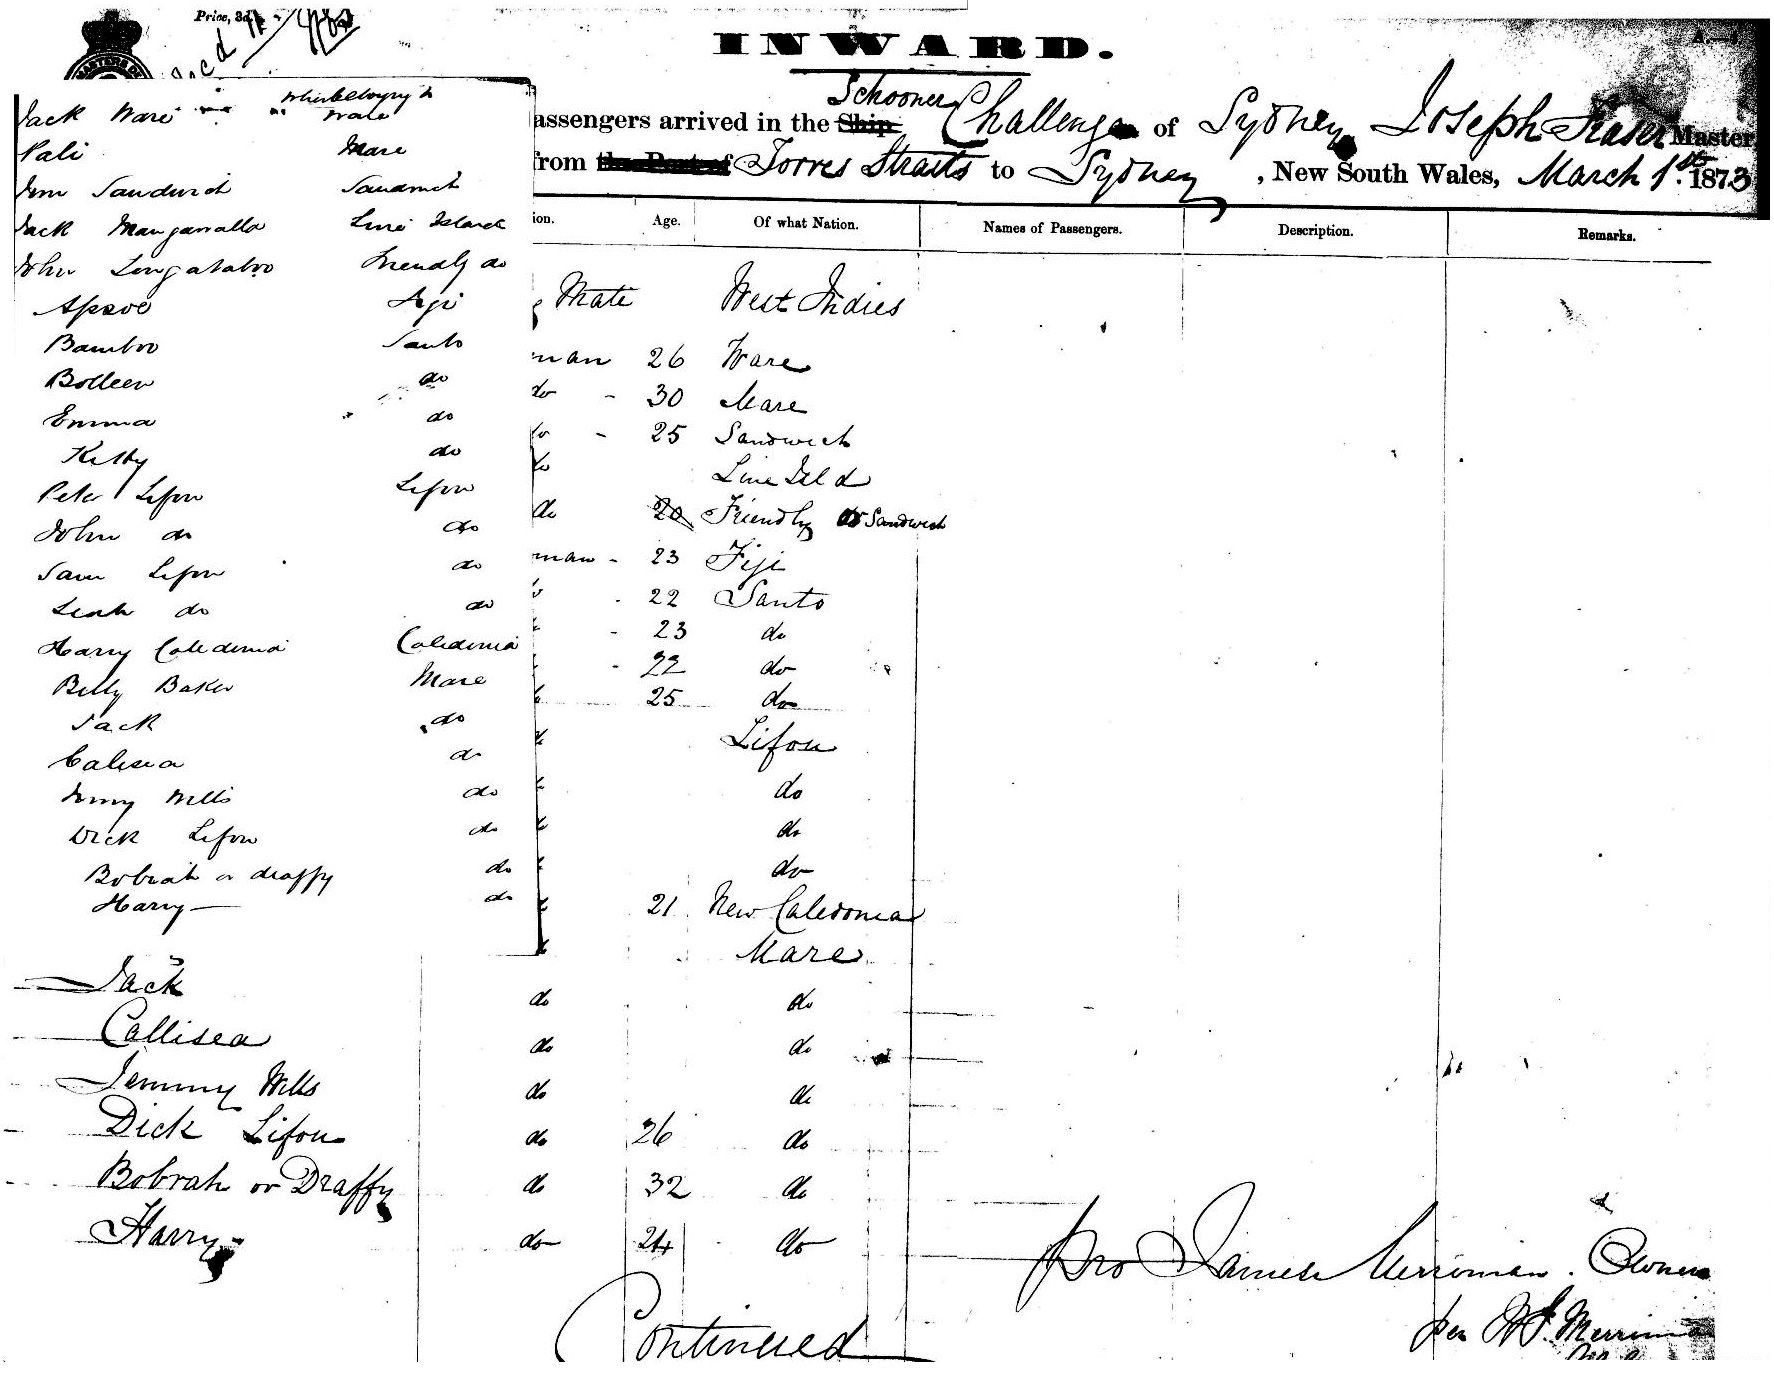 Price, 3d.
INWARD.
assengers arrived in the Ship Schooner Challenge of Sydney Joseph Fraser Master
from the Port of Torres Straits to Sydney, New South Wales, March 1st 1873
ion. Age. Of what Nation. Names of Passengers. Description. Remarks.
Jack Ware
Ware
Pali Mare
Jim Sandwich Sandwich
Jack Manganalla Line Islands
John Longataboo Friendly do
Apsoe Fiji
Bamboo Santo
Bolleen do
Emma do
Kitty do
Peter Lifou Lifou
John do do
Sam Lifou do
Leah do do
Harry Caledonia Caledonia
Billy Baker Mare
Jack do
Calisea do
Jimmy Wills do
Dick Lifou do
Bobrah or draffy do
Harry do
Mate West Indies
man 26 Ware
do - 30 Mare
do - 25 Sandwich
do Line Isld
do 20 Friendly or Sandwich
man - 23 Fiji
22 Santo
- 23 do
- 22 do
25 do
Lifou
do
do
do
21 New Caledonia
Mare
Jack do do
Callisea do do
Jemmy Wills do do
Dick Lifou do 26 do
Bobrah or Draffy do 32 do
Harry do 24 do
Continued
pro James Merriman. Owner
per W J. Merriman